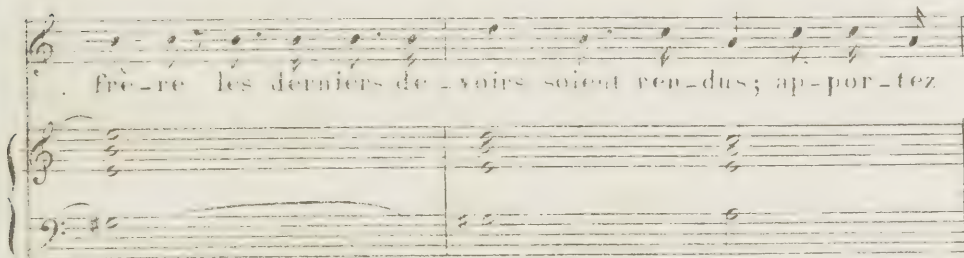 frè-re les derniers de-voirs soient ren-dus; ap-por-tez